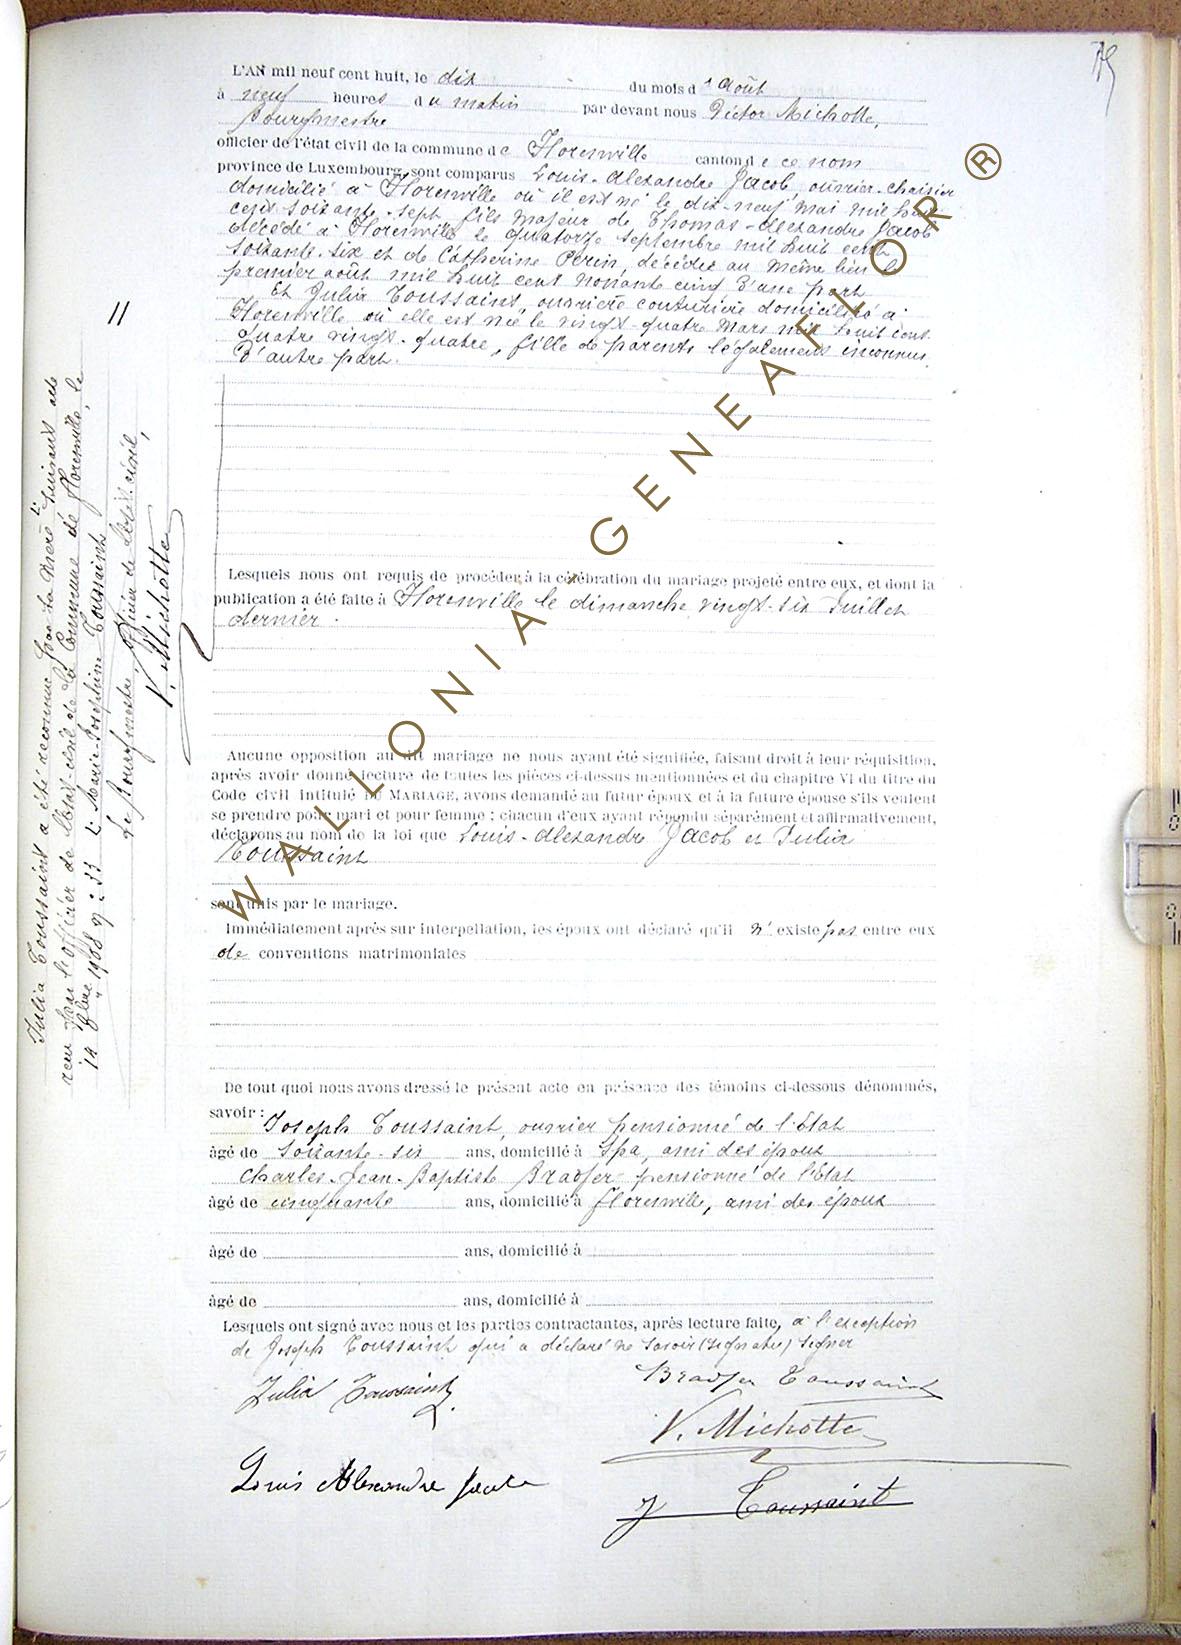 L'AN mil neuf cent huit, le dix du mois d'août
à neuf heures du matin par devant nous Victor Michotte,
bourgmestre
officier de l'état civil de la commune de Florenville canton de ce nom
province de Luxembourg, sont comparus Louis-Alexandre Jacob, ouvrier-chaisier
domicilié à Florenville où il est né le dix-neuf mai mil huit
cent soixante-sept fils majeur de Thomas-Alexandre Jacob
décédé à Florenville le quatorze septembre mil huit cent
soixante-six et de Catherine Perin, décédée au même lieu le
premier août mil huit cent nonante cinq d'une part
Et Julia Toussaint, ouvrière couturière domiciliée à
Florenville où elle est née le vingt-quatre mars mil huit cent
quatre vingt-quatre, fille de parents légalement inconnus.
d'autre part.
11
Lesquels nous ont requis de procéder à la célébration du mariage projeté entre eux, et dont la
publication a été faite à Florenville le dimanche vingt-six Juillet
dernier.
Aucune opposition au dit mariage ne nous ayant été signifiée, faisant droit à leur réquisition,
après avoir donné lecture de toutes les pièces ci-dessus mentionnées et du chapitre VI du titre du
Code civil intitulé DU MARIAGE, avons demandé au futur époux et à la future épouse s'ils veulent
se prendre pour mari et pour femme ; chacun d'eux ayant répondu séparément et affirmativement,
déclarons au nom de la loi que Louis-Alexandre Jacob et Julia
Toussaint
sont unis par le mariage.
Immédiatement après sur interpellation, les époux ont déclaré qu'il n'existe pas entre eux
de conventions matrimoniales
De tout quoi nous avons dressé le présent acte en présence des témoins ci-dessous dénommés,
savoir : Joseph Toussaint, ouvrier pensionné de l'Etat
âgé de soixante-six ans, domicilié à Spa, ami des époux
Charles-Jean-Baptiste Bradfer pensionné de l'Etat
âgé de cinquante ans, domicilié à Florenville, ami des époux
âgé de ans, domicilié à
âgé de ans, domicilié à
Lesquels ont signé avec nous et les parties contractantes, après lecture faite, à l'exception
de Joseph Toussaint qui a déclaré ne savoir signer
Julia Toussaint
Bradfer Toussaint
V. Michotte
Louis Alexandre Jacob
J Toussaint
Julia Toussaint a été reconnue par la mère suivant acte
reçu par l'officier de l'état-civil de la Commune de Florenville, le
1908 Marie-Joséphine Toussaint
Le Bourgmestre, officier de l'état-civil,
V. Michotte
WALLONIA-GENEAFLOR®